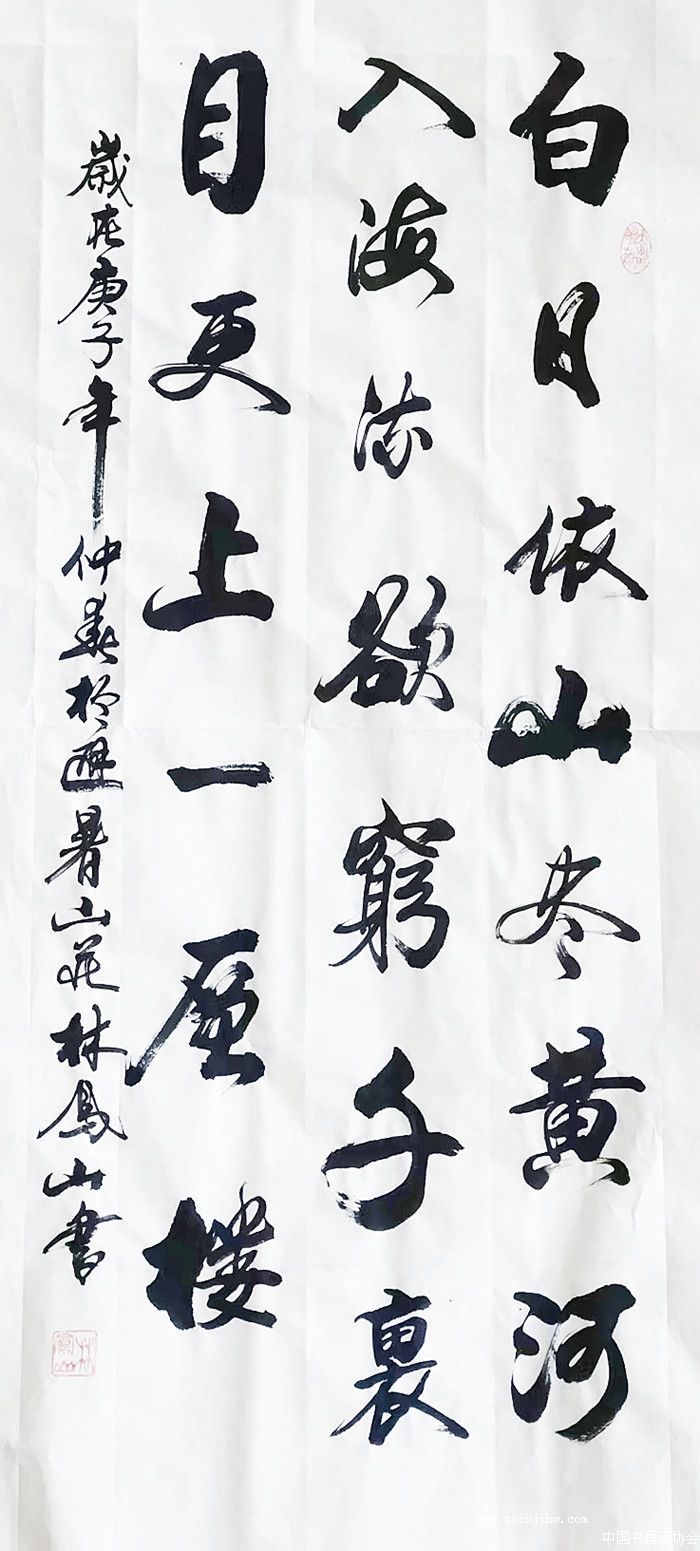 白日依山尽黄河
入海流欲窮千裏
目更上一層楼
歲在庚子年仲春於避暑山莊林鳳山書
林鳳山
中国书画家协会